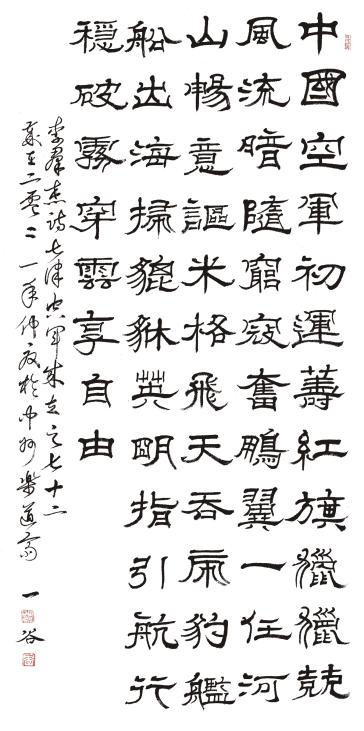 中國空軍初運籌紅旗獵獵競
風流暗隨窮寇奮鵬翼一任河
山暢意謳米格飛天吞虎豹艦
船出海掃貔貅英明指引航行
穩破霧穿雲享自由
诗七律空軍成立之七十二
歲在二零二一年仲夏於中州樂道齋 一谷